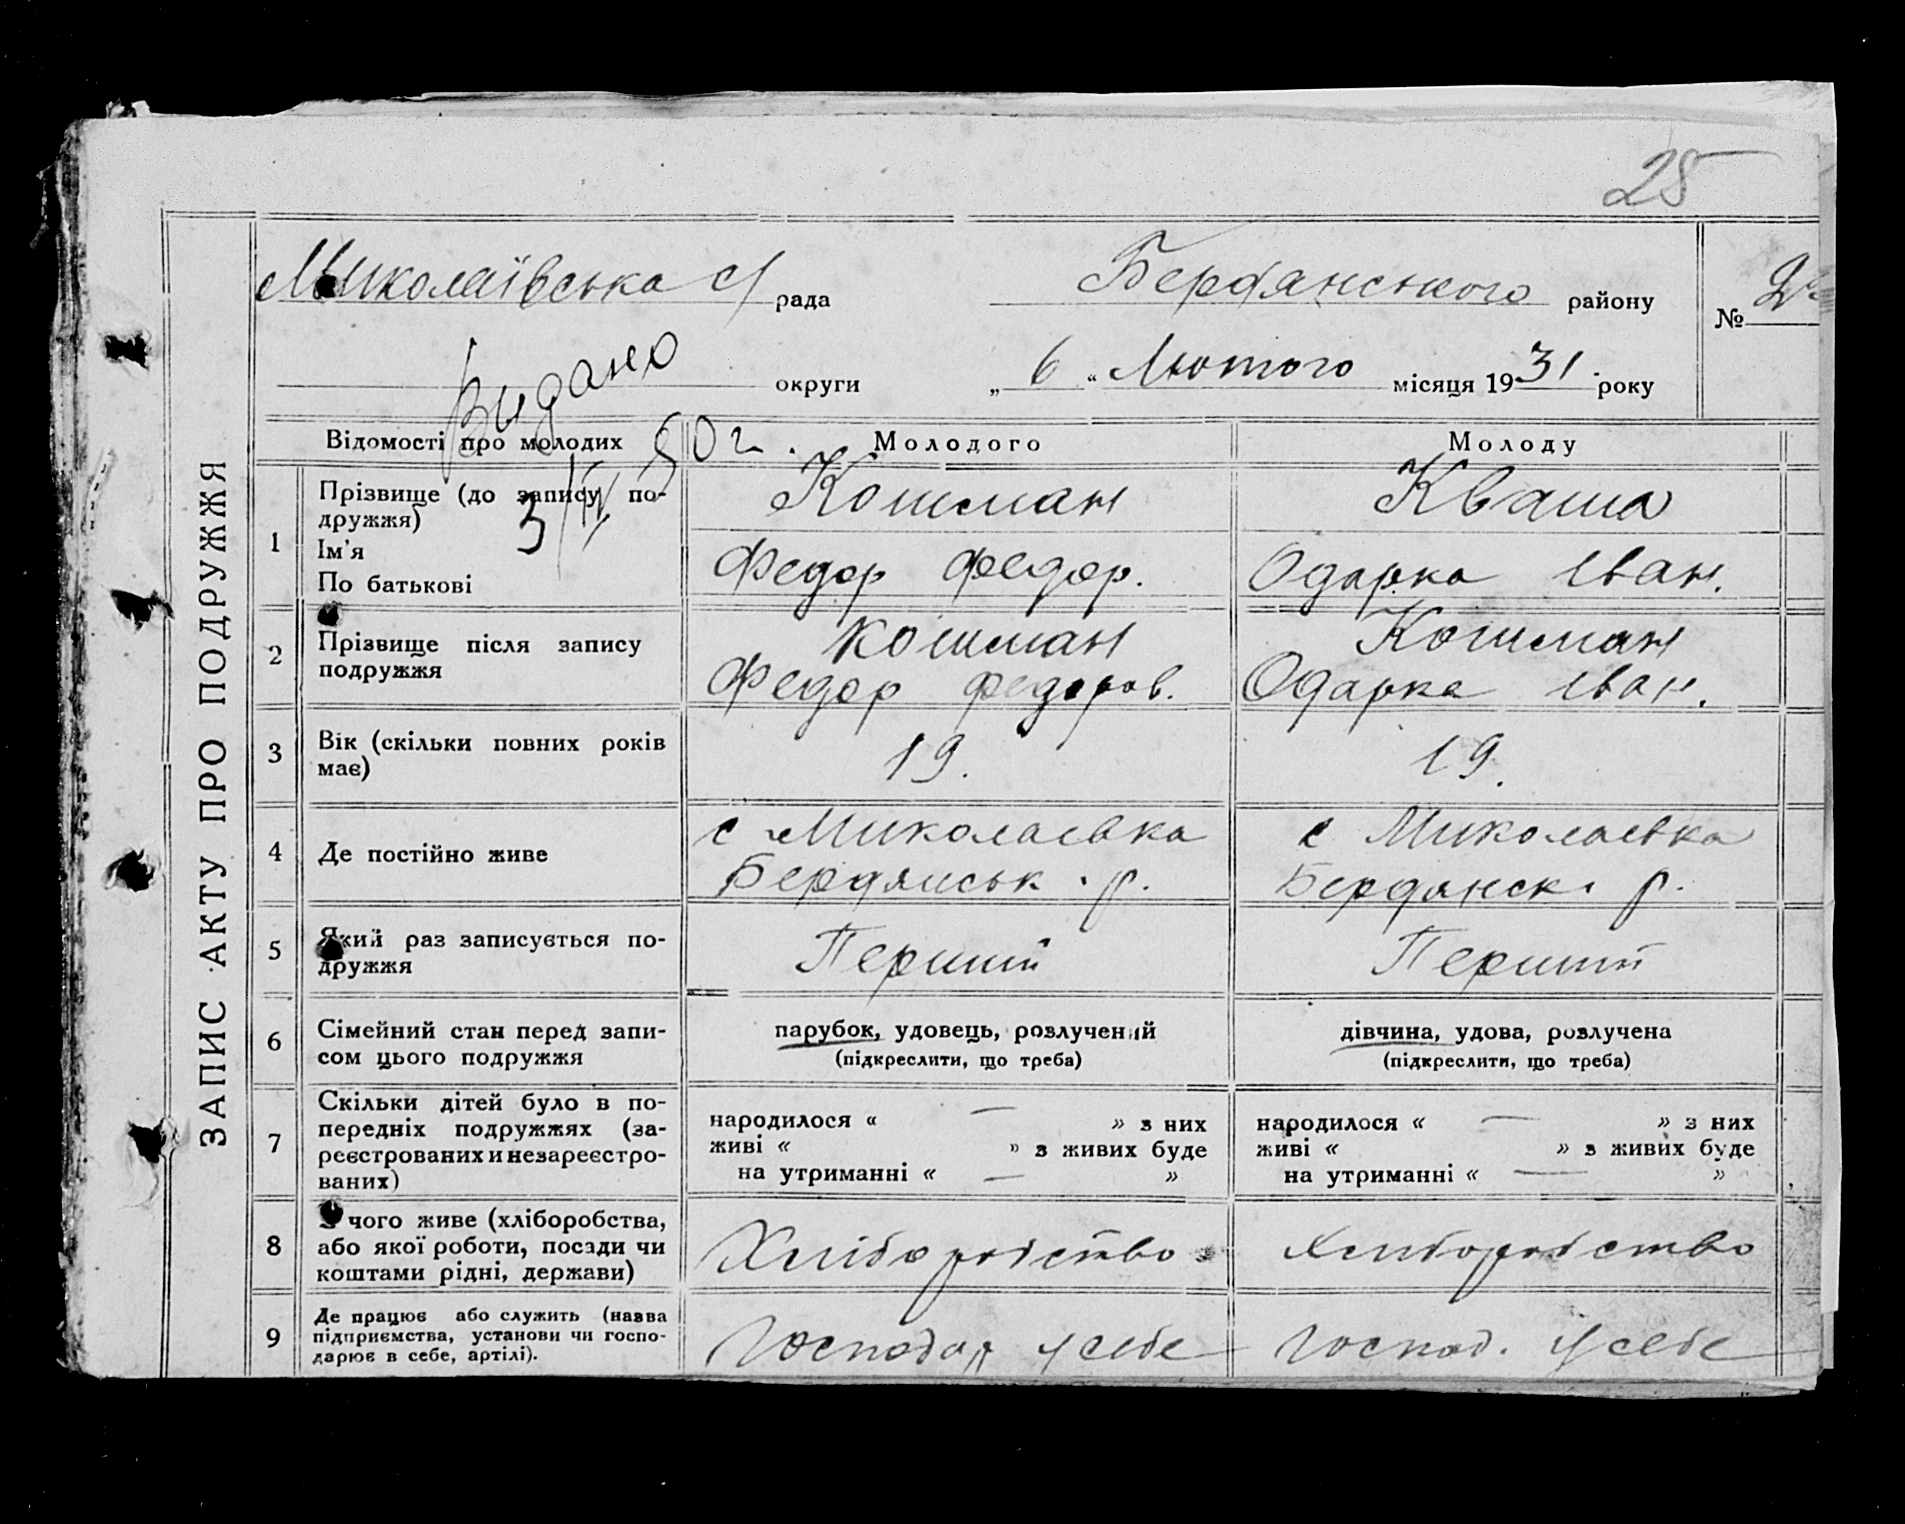 25
Миколаївська с/рада Бердянського району №
округи „ 6 “ Лютого місяця 1931 року
Видано
3/IV 50 г.
ЗАПИС АКТУ ПРО ПОДРУЖЖЯ
Відомості про молодих Молодого Молоду
1 Прізвище (до запису по-
дружжя)
Ім'я
По батькові
Кошман
Федор Федор.
Кваша
Одарка Іван.
2 Прізвище після запису
подружжя
Кошман
Федор Федоров.
Кошман
Одарка Іван.
3 Вік (скільки повних років
має)
19.
19.
4 Де постійно живе
с Миколаевка
Бердянськ. р.
с Миколаевка
Бердянск. р.
5 Який раз записується по-
дружжя
Перший
Перший
6 Сімейний стан перед запи-
сом цього подружжя
парубок, удовець, розлучений
(підкреслити, що треба)
дівчина, удова, розлучена
(підкреслити, що треба)
7 Скільки дітей було в по-
передніх подружжях (за-
реєстрованих и незареєстро-
ваних)
народилося « — » з них
живі « » з живих буде
на утриманні « — »
народилося « — » з них
живі « » з живих буде
на утриманні « — »
8 З чого живе (хліборобства,
або якої роботи, посади чи
коштами рідні, держави)
Хліборобство
Хлиборобство
9 Де працює або служить (назва
підприємства, установи чи госпо-
дарює в себе, артілі).
Господар у себе
Господ. у себе